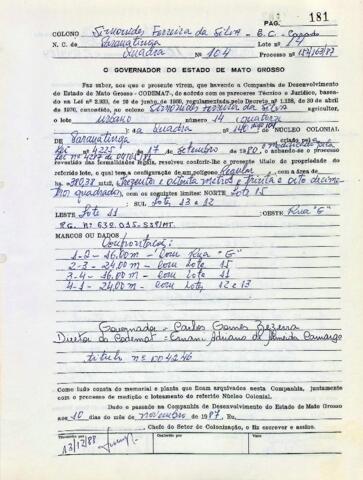 PAG. 181
COLONO Sirnorides Ferreira da Silva - B.C. - Casado
N. C. de Paranatinga Lote nº 14
Quadra Nº 104 Processo nº 154/163/87
O GOVERNADOR DO ESTADO DE MATO GROSSO
Faz saber, aos que o presente virem, que havendo a Companhia de Desenvolvimento
do Estado de Mato Grosso - CODEMAT, de acordo com os pareceres Técnico e Jurídico,
baseado na Lei nº 2.933, de 20 de junho de 1969, regulamentada pelo Decreto n.o 1.138, de 30 de abril
de 1970, concedido, ao colono Sirnorides Ferreira da Silva agricultor, o
lote urbano nº 14
da Quadra nº 104 NÚCLEO COLONIAL
DE Paranatinga
Lei nº 4225 de 17 de Setembro de 80 Modificada pela
Lei nº e achando-se o processo
revestido das formalidades legais, resolveu conferir-lhe o presente título de propriedade do
referido lote, o qual tem a configuração de um polígono Regular, com a área de
Trezentos e oitenta metros e trinta e oito decíme-
tros quadrados com os seguintes limites: NORTE Lote 15
SUL Lote 13 e 12
LESTE Lote 11 OESTE Rua "G"
R.G. Nº 638.035-SSP/MT.
MARCOS OU DADOS Confrontações:
1-2 - 16,00m - Com Rua "G"
2-3 - 24,00m - Com Lote 15
3-4 - 16,00m - Com Lote 11
4-1 - 24,00m - Com Lote, 12 e 13
Governador - Carlos Gomes Bezerra
Diretor da Codemat = Ernani Adriano de Almeida Camargo
título nº 004246
Como tudo consta do memorial e planta que ficam arquivados nesta Companhia, juntamente
com o processo de medição e loteamento do referido Núcleo Colonial.
Dado e passado na Companhia de Desenvolvimento do Estado de Mato Grosso
aos 10 dias do mês de novembro de 1987. Eu,
Chefe do Setor de Colonização, o fiz escrever e assino.
Conferido por
Visto
13/12/88